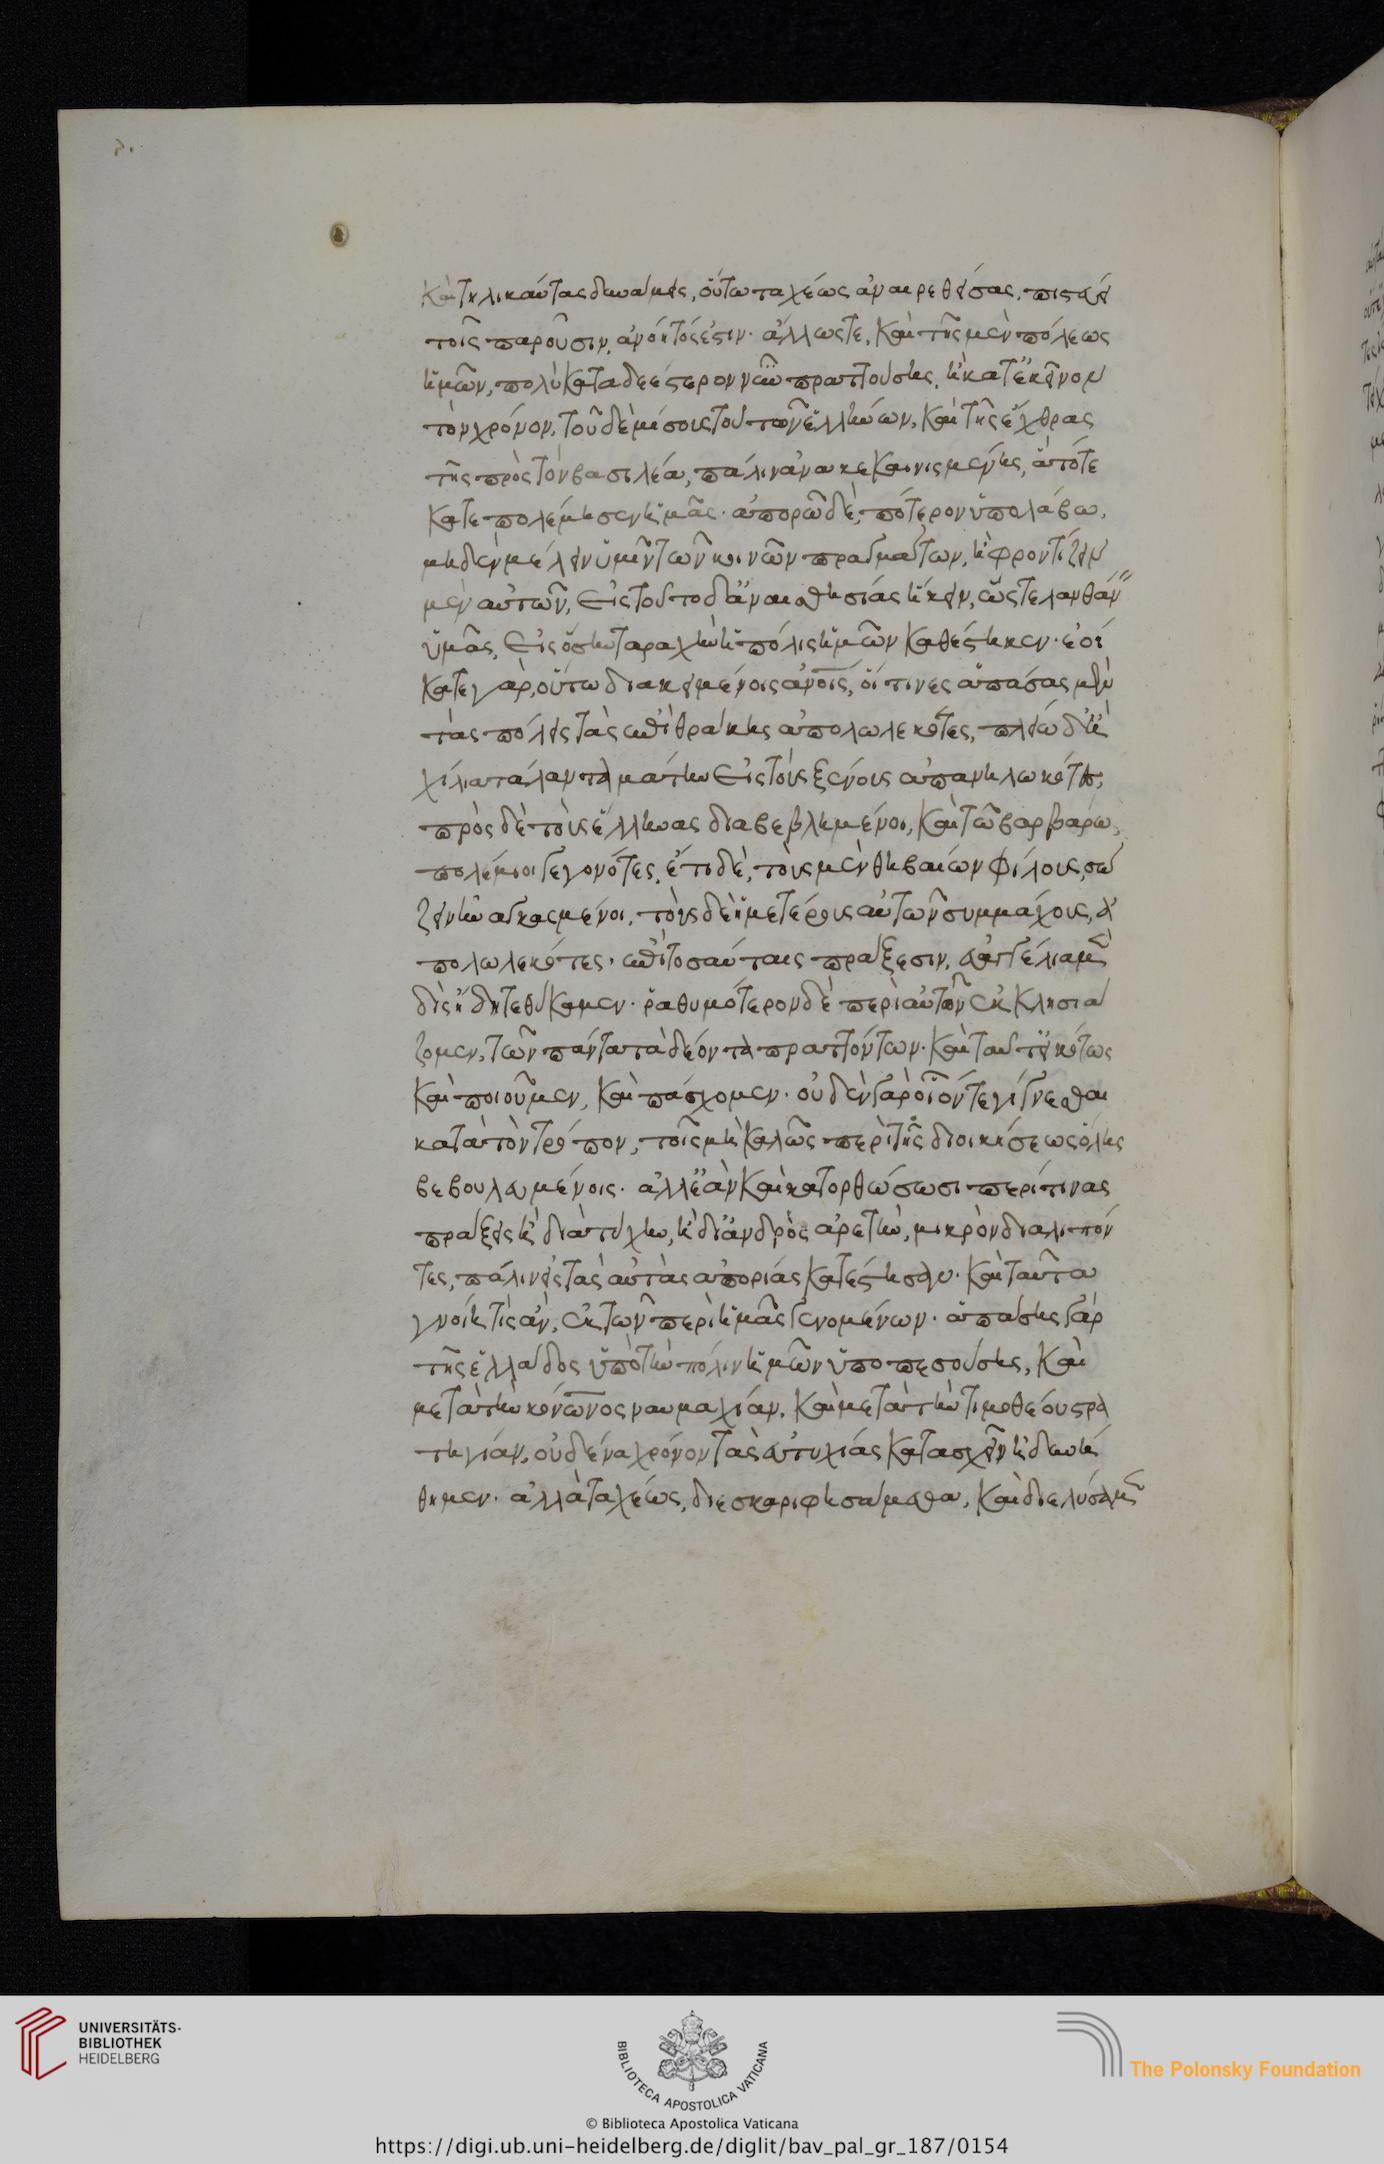 Καὶ τηλικαύτας δυνάμεις, οὕτω ταχέως ἀναιρεθείσας, πιστεύειν
τοῖς παροῦσιν, ἀνόητός ἐστιν· ἄλλως τε, καὶ τῆς μὲν πόλεως
ἡμῶν, πολὺ καταδεέστερον νῦν πραττούσης, ἢ κατ' ἐκεῖνον
τὸν χρόνον, τοῦ δὲ μίσους τοῦ τῶν ἑλλήνων, καὶ τῆς ἔχθρας
τῆς πρὸς τὸν βασιλέα, πάλιν ἀνακεκαινισμένης, ἃ τότε
κατεπολέμησεν ἡμᾶς· ἀπορῶ δὲ, πότερον ὑπολάβω,
μηδὲν μέλειν ὑμῖν τῶν κοινῶν πραγμάτων, ἢ φροντίζειν
μὲν αὐτῶν, εἰς τοῦτο δ' ἀναισθησίας ἥκειν, ὥστε λανθάν
ὑμᾶς, εἰς ὅσην ταραχὴν ἡ πόλις ἡμῶν καθέστηκεν· ἐοί
κατε γὰρ, οὕτω διακειμένοις ἀνοις, οἵ τινες ἁπάσας μὲν
τὰς πόλεις τὰς ἐπὶ θράκης ἀπολωλεκότες, πλείω δ' ἢ
χίλια τάλαντα μάτην εἰς τοὺς ξένους ἀπανηλωκότες,
πρὸς δὲ τοὺς ἕλληνας διαβεβλημένοι, καὶ τῶ βαρβάρω,
πολέμιοι γεγονότες, ἔτι δὲ, τοὺς μὲν θηβαίων φίλους, σώ
ζειν ἠναγκασμένοι, τοὺς δὲ ἡμετέρους αὐτῶν συμμάχους, ἀ
πολωλεκότες· ἐπὶ τοσαύταις πράξεσιν, εὐαγγέλια μὲν
δὶς ἤδη τεθύκαμεν· ῥαθυμότερον δὲ περὶ αὐτῶν ἐκκλησιά
ζομεν, τῶν πάντα τὰ δέοντα πραττόντων· καὶ ταῦτ' εἰκότως
καὶ ποιοῦμεν, καὶ πάσχομεν· οὐδὲν γὰρ οἷόν τε γίγνεσθαι
κατὰ τὸν τρόπον, τοῖς μὴ καλῶς περὶ τῆς διοικήσεως ὅλης
βεβουλευμένοις· ἀλλ' ἐὰν καὶ κατορθώσωσι περί τινας
πράξεις ἢ διὰ τύχην, ἢ δι' ἀνδρὸς ἀρετὴν, μικρὸν διαλιπόν
τες, πάλιν εἰς τὰς αὐτὰς ἀπορίας κατέστησαν· καὶ ταῦτα
γνοίη τὶς ἂν, ἐκ τῶν περὶ ἡμᾶς γενομένων· ἁπάσης γὰρ
τῆς ἑλλάδος ὑπὸ τὴν πόλιν ἡμῶν ὑποπεσούσης, καὶ
μετὰ τὴν κόνωνος ναυμαχίαν, καὶ μετὰ τὴν τιμοθέου στρα
τηγίαν, οὐδένα χρόνον τὰς εὐτυχίας κατασχεῖν ἠδυνή
θημεν· ἀλλὰ ταχέως, διεσκαριφησάμεθα, καὶ διελύσαμεν
UNIVERSITÄTS-
BIBLIOTHEK
HEIDELBERG
BIBLIOTECA APOSTOLICA VATICANA
The Polonsky Foundation
© Biblioteca Apostolica Vaticana
https://digi.ub.uni-heidelberg.de/diglit/bav_pal_gr_187/0154